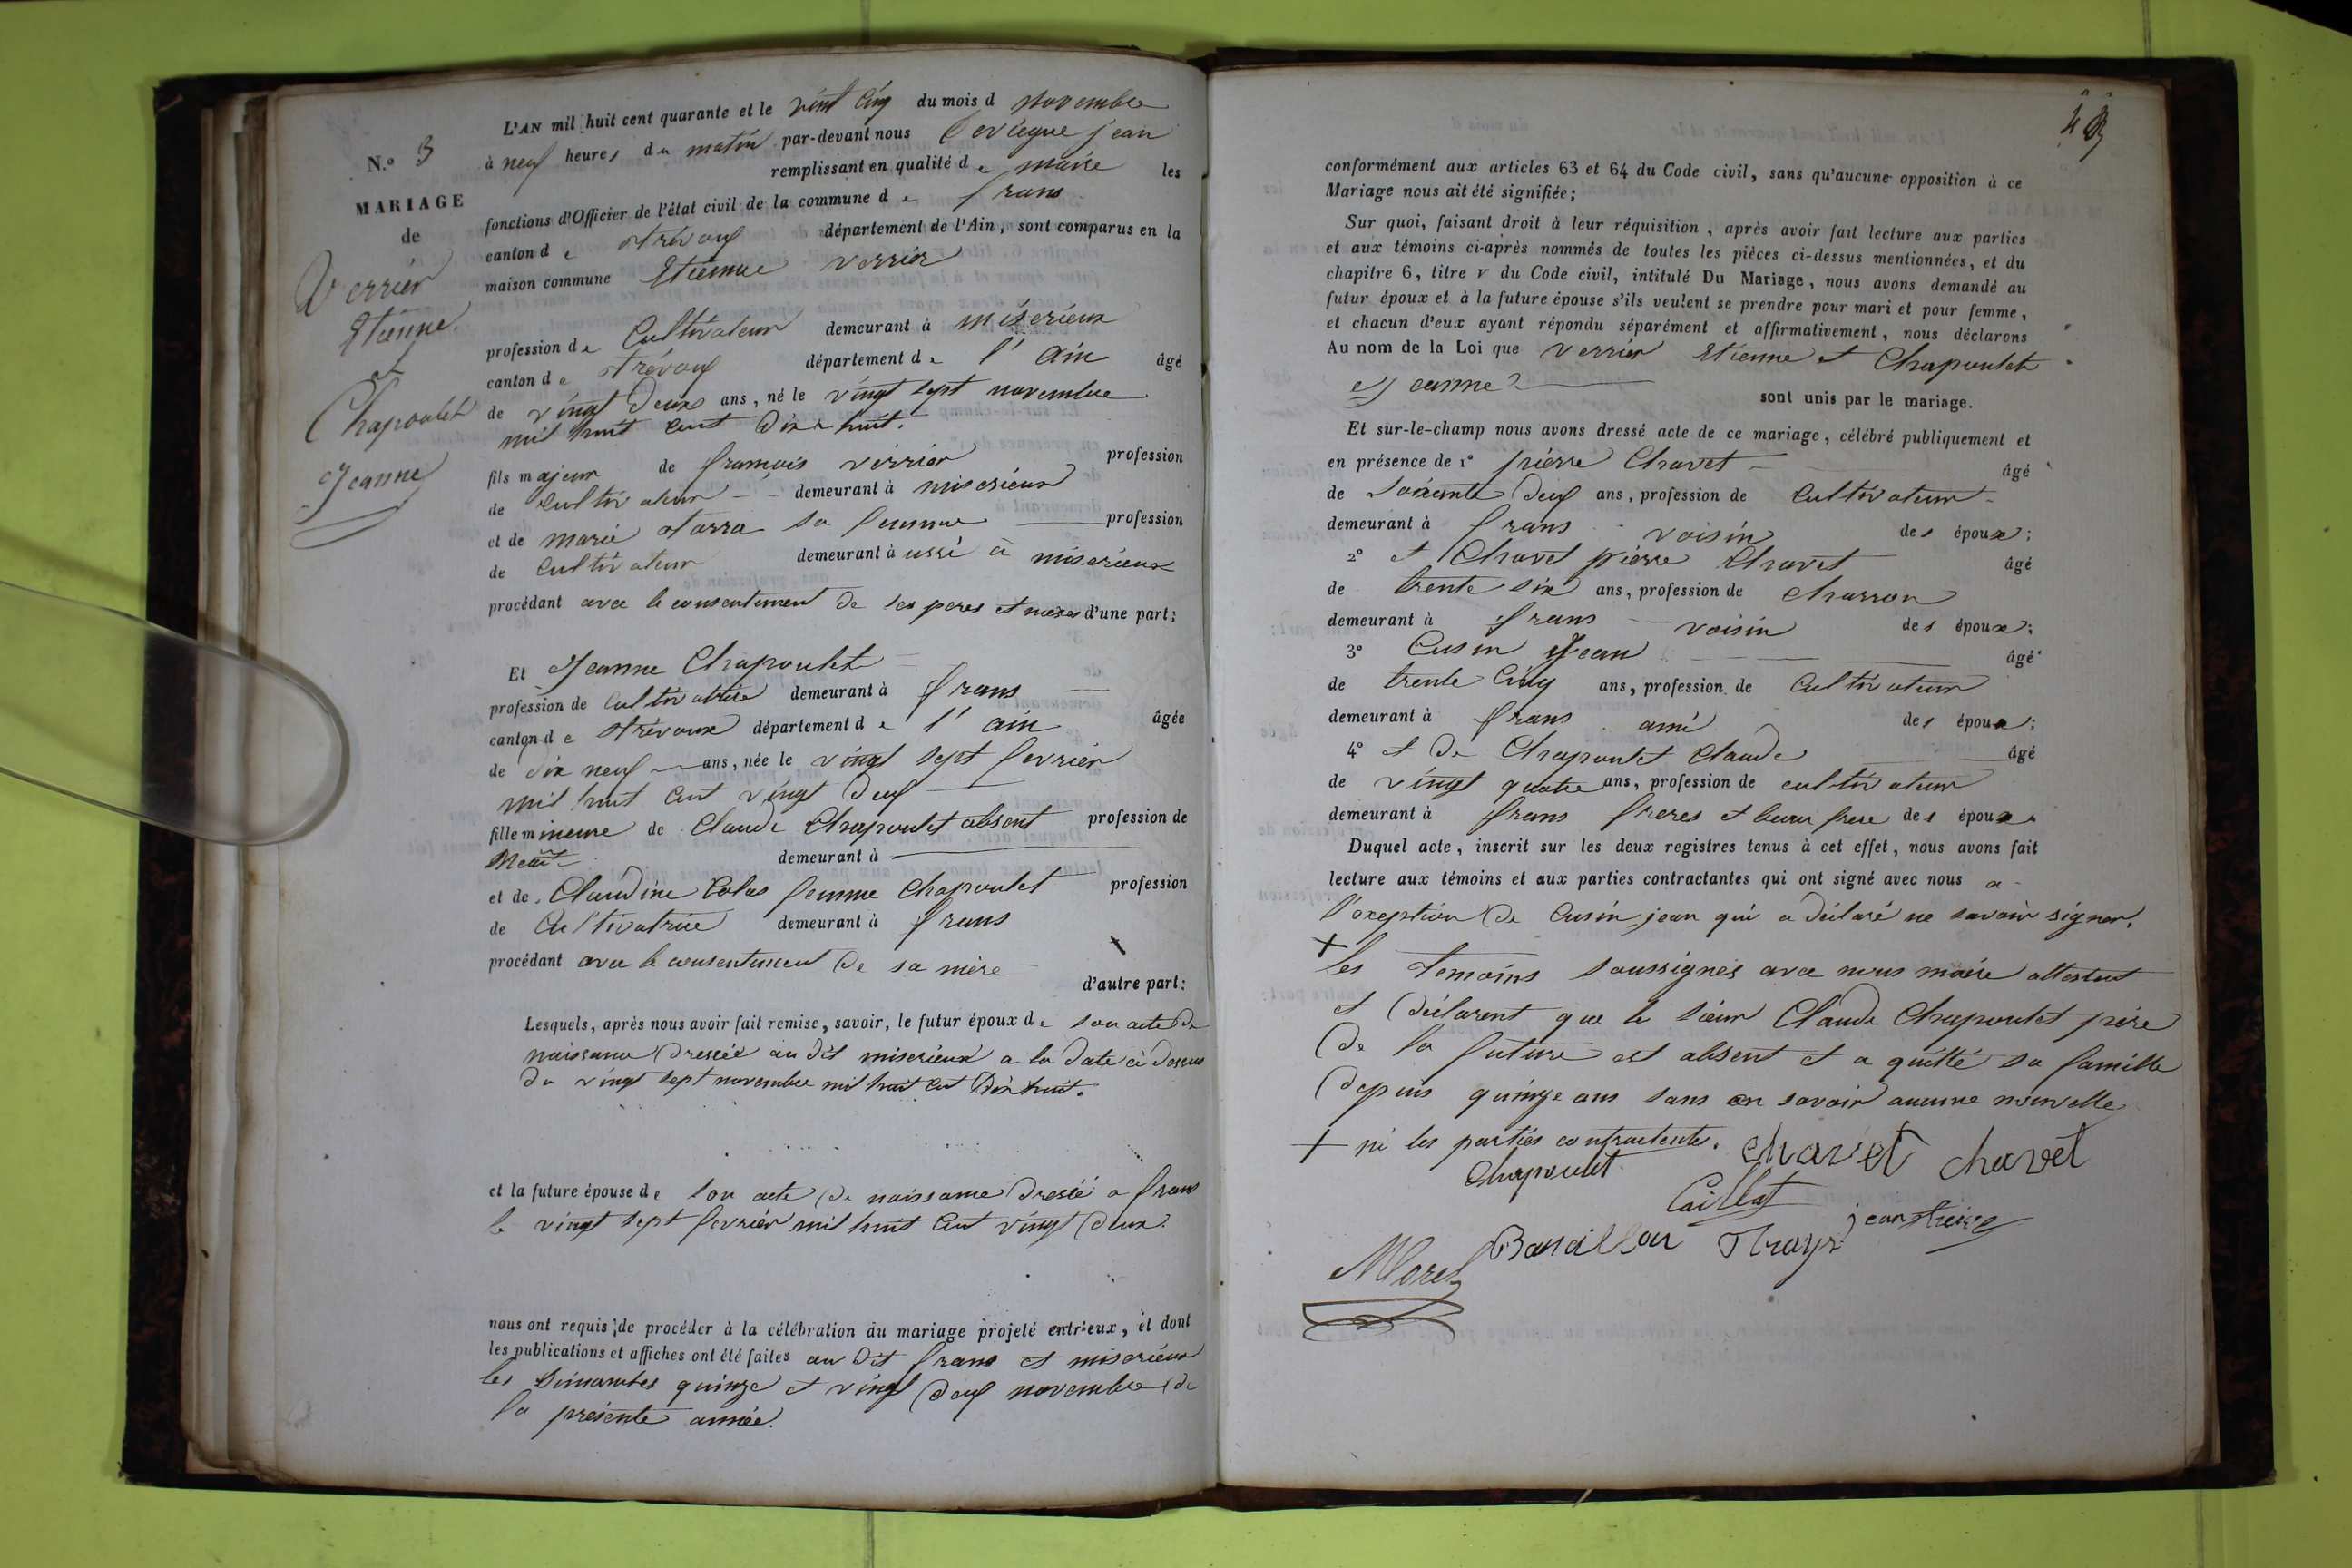 N.º 3
MARIAGE
de
Verrier
Etienne
et
Chapoulet
Jeanne
L'AN mil huit cent quarante et le vint cinq du mois d novembre
à neuf heures du matin par-devant nous jean
remplissant en qualité de maire les
fonctions d'Officier de l'état civil de la commune de frans
canton de trévoux département de l'Ain, sont comparus en la
maison commune Etienne verrier
profession de Cultivateur demeurant à misérieux
canton de trévoux département de l'ain âgé
de vingt deux ans, né le vingt sept novembre
mil huit cent dix huit.
fils majeur de françois verrier profession
de cultivateur demeurant à miserieux
et de marie sa femme profession
de cultivateur demeurant à ussi à miserieux
procédant avec le consentement de ses peres et meres d'une part;
Et Jeanne Chapoulet
profession de cultivatrice demeurant à frans
canton de trévoux département de l'ain âgée
de dix neuf ans, née le vingt sept fevrier
mil huit cent vingt deux
fille mineure de Claude Chapoulet absent profession de
demeurant à
et de Claudine Colas femme chapoulet profession
de Cultivatrice demeurant à frans
procédant avec le consentement de sa mère
d'autre part:
Lesquels, après nous avoir fait remise, savoir, le futur époux de son acte de
naissance dressée au dit miserieux a la date ci dessus
du vingt sept novembre mil huit cent dix huit.
et la future épouse de son acte de naissance dressé a frans
le vingt sept fevrier mil huit cent vingt deux.
nous ont requis de procéder à la célébration du mariage projeté entr'eux, et dont
les publications et affiches ont été faites au dit frans et miserieux
les dimanches quinze et vingt deux novembre de
la présente année.
conformément aux articles 63 et 64 du Code civil, sans qu'aucune opposition à ce
Mariage nous ait été signifiée;
Sur quoi, faisant droit à leur réquisition, après avoir fait lecture aux parties
et aux témoins ci-après nommés de toutes les pièces ci-dessus mentionnées, et du
chapitre 6, titre v du Code civil, intitulé Du Mariage, nous avons demandé au
futur époux et à la future épouse s'ils veulent se prendre pour mari et pour femme,
et chacun d'eux ayant répondu séparément et affirmativement, nous déclarons
Au nom de la Loi que verrier Etienne et Chapoulet
Jeanne
sont unis par le mariage.
Et sur-le-champ nous avons dressé acte de ce mariage, célébré publiquement et
en présence de 1º pierre Chavet âgé
de soixante deux ans, profession de Cultivateur
demeurant à frans voisin des époux;
2º et Chavet pierre Chavet âgé
de trente six ans, profession de charron
demeurant à frans voisin des époux;
3º Cusin Jean âgé
de trente cinq ans, profession de Cultivateur
demeurant à frans ami des époux;
4º et de Chapoulet Claude âgé
de vingt quatre ans, profession de cultivateur
demeurant à frans freres et beau frere des époux
Duquel acte, inscrit sur les deux registres tenus à cet effet, nous avons fait
lecture aux témoins et aux parties contractantes qui ont signé avec nous a
l'exeption de Cusin jean qui a déclaré ne savoir signer.
+ les temoins soussignés avec nous maire attestent
et déclarent que le sieur Claude Chapoulet père
de la future est absent et a quitté sa famille
depuis quinze ans sans en savoir aucune nouvelle
+ ni les parties contractantes. chavet chavet
Chapoulet
Caillat
jean
Morel